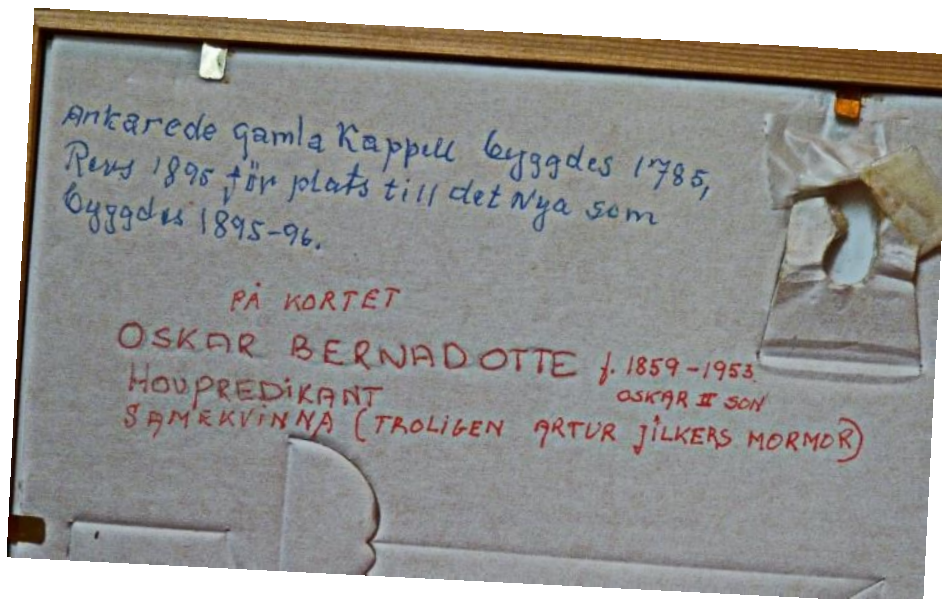 Ankarede gamla Kappell byggdes 1785,
Revs 1895 för plats till det Nya som
byggdes 1895-96.
PÅ KORTET
OSKAR BERNADOTTE f. 1859-1953
HOVPREDIKANT OSKAR II SON
SAMEKVINNA (TROLIGEN ARTUR JILKERS MORMOR)